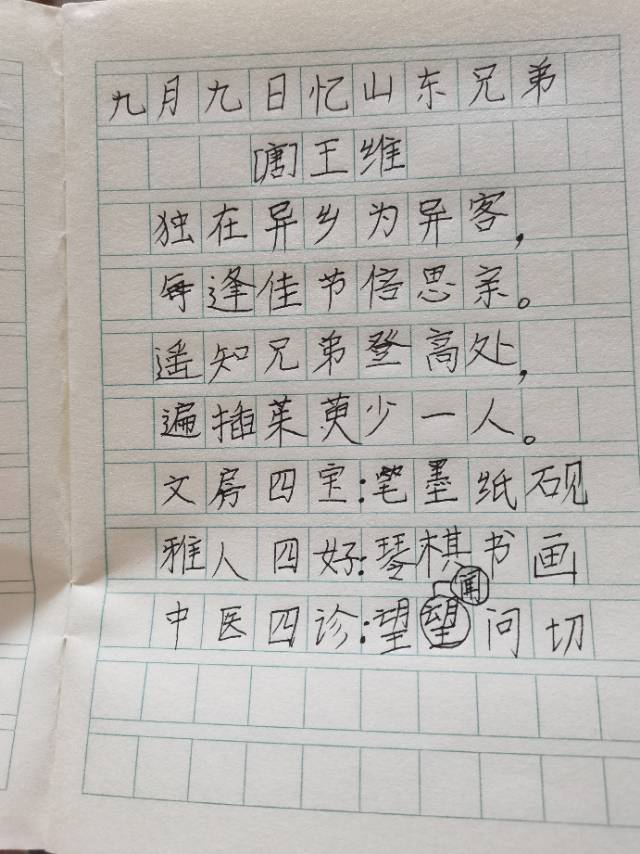 九月九日忆山东兄弟
[唐]王维
独在异乡为异客，
每逢佳节倍思亲。
遥知兄弟登高处，
遍插茱萸少一人。
文房四宝：笔墨纸砚
雅人四好：琴棋书画
闻
中医四诊：望望问切